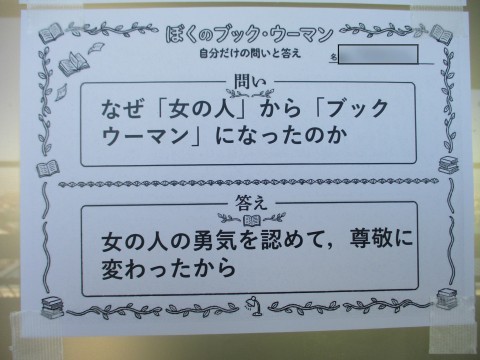 ぼくのブック・ウーマン
自分だけの問いと答え
名
問い
なぜ「女の人」から「ブック
ウーマン」になったのか
答え
女の人の勇気を認めて，尊敬に
変わったから